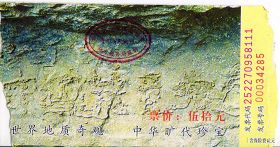 票价：伍拾元
世界地质奇观 中华旷代珍宝
发票代码 252270958111
发票号码 00034285